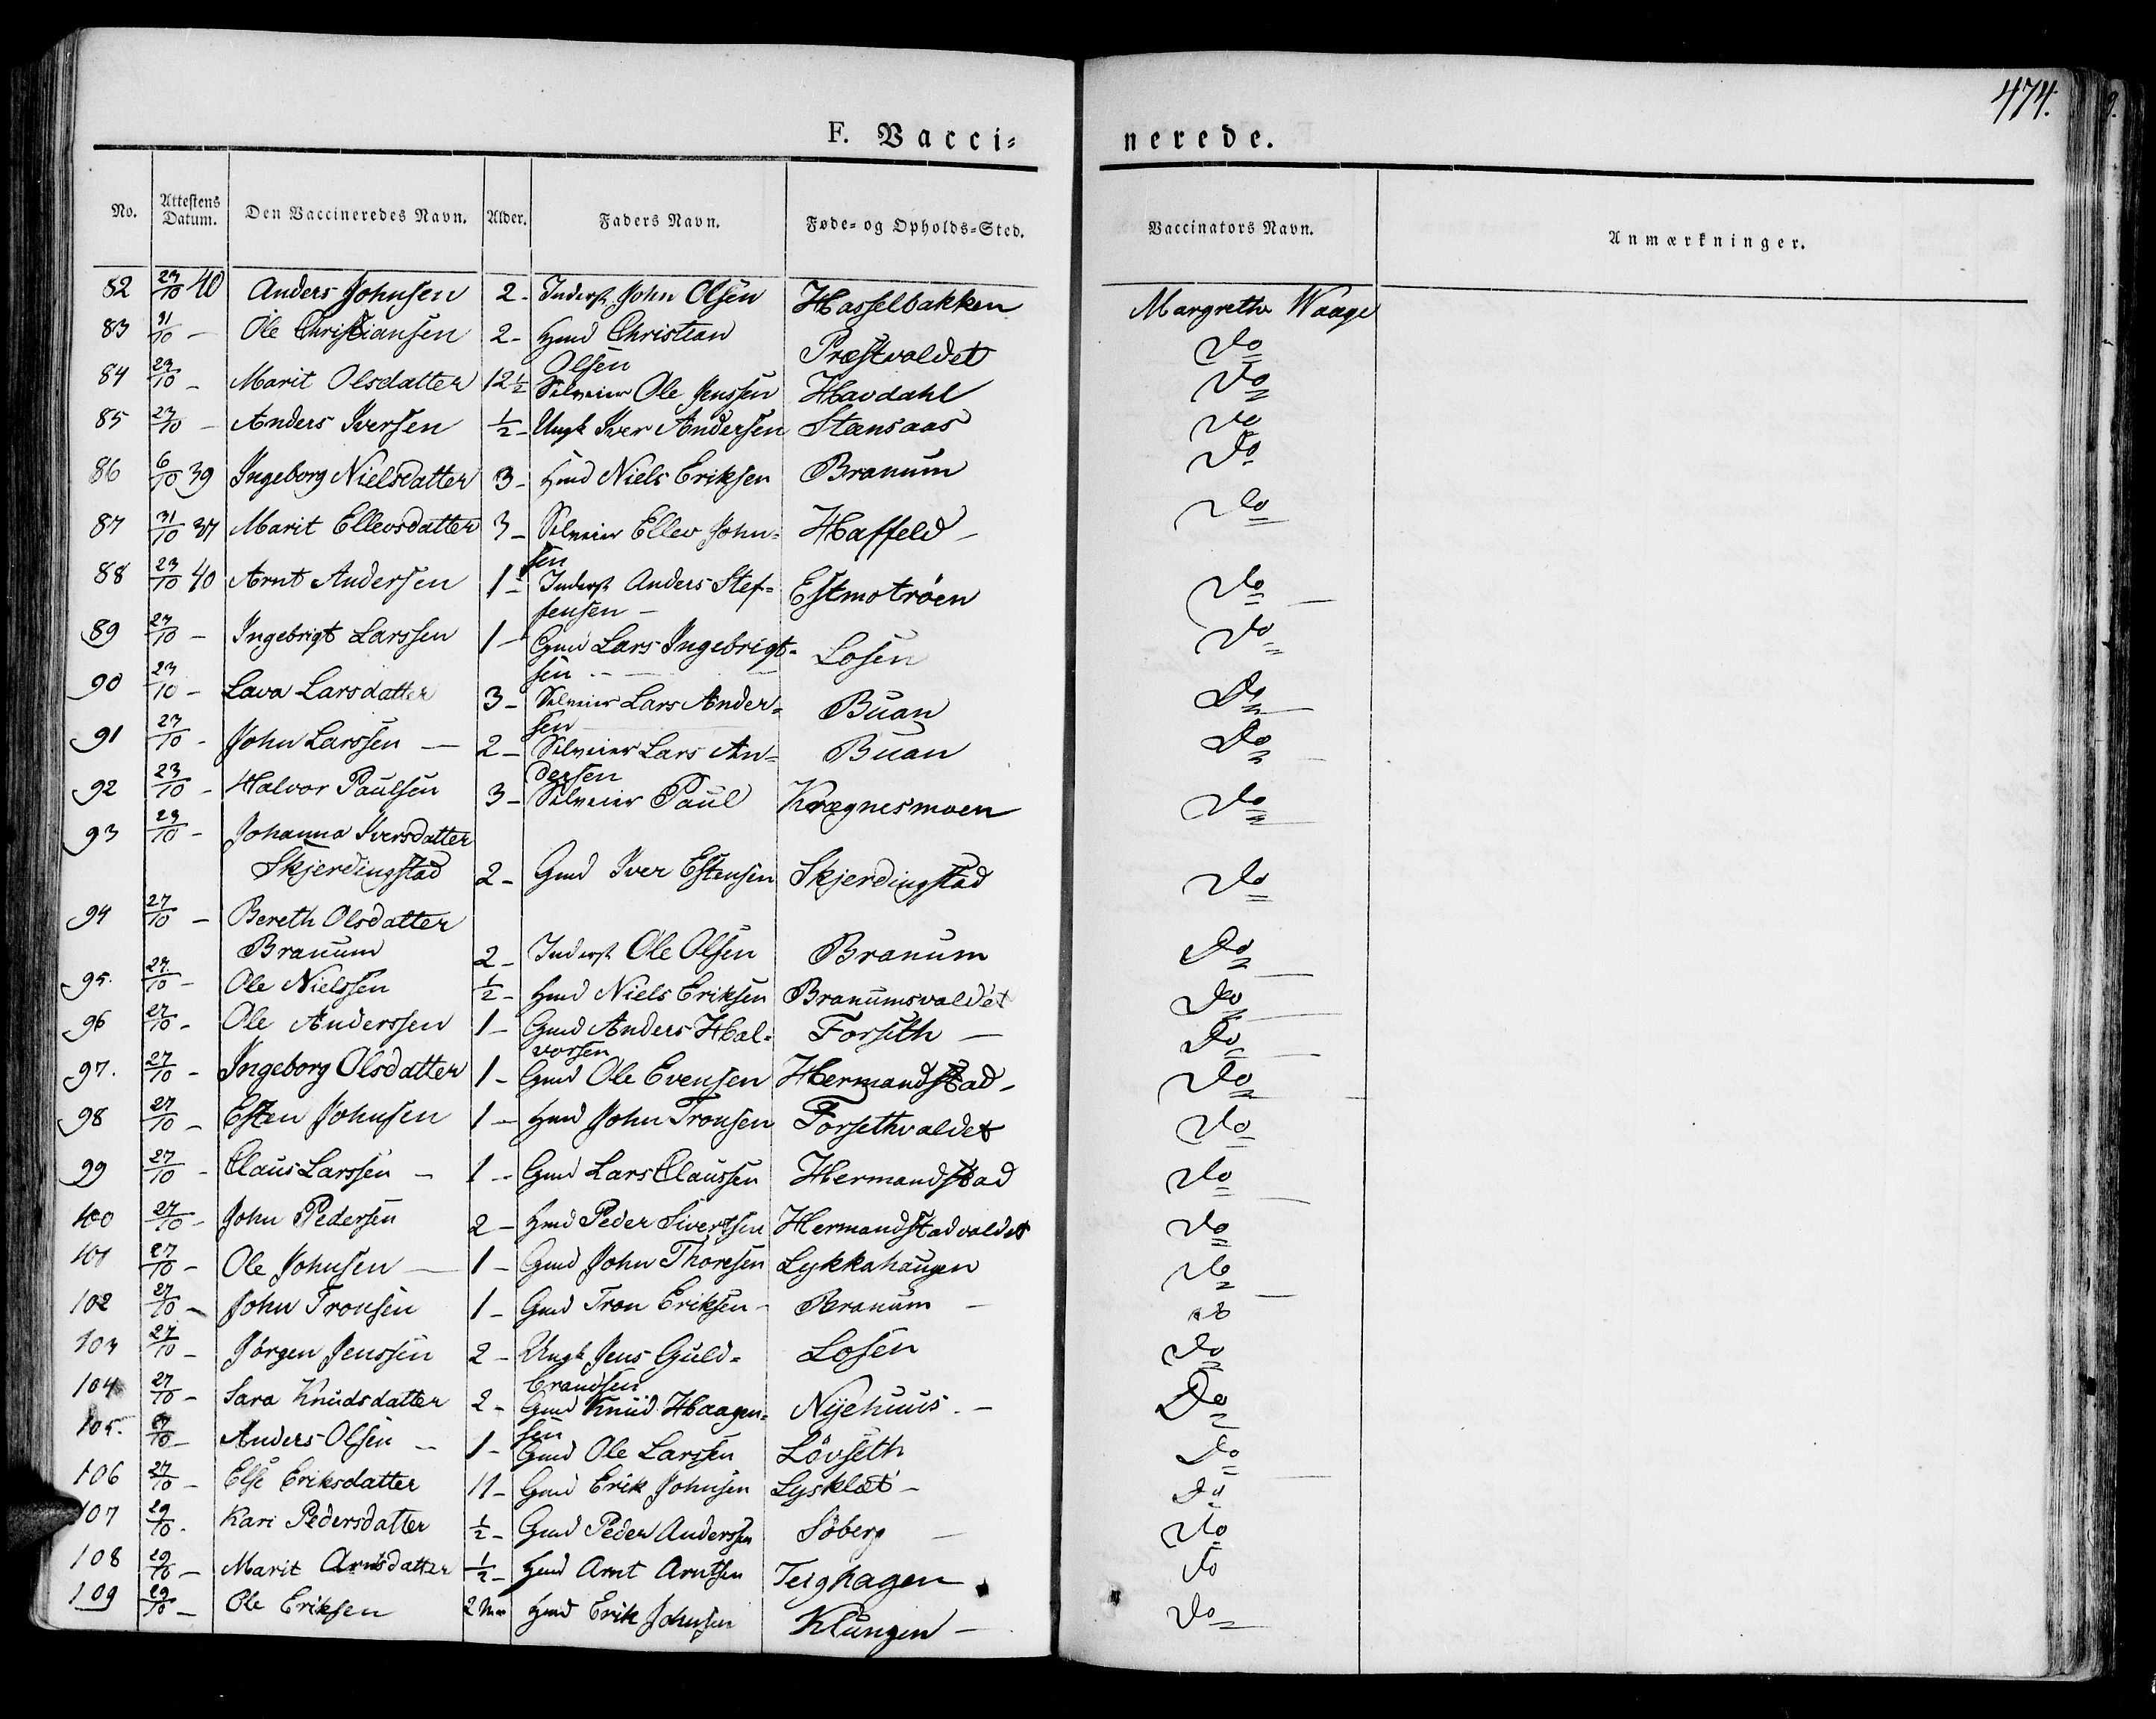 474.
F. Vacci-
nerede.
No. Attestens Datum. Den Vaccineredes Navn. Alder. Faders Navn. Føde- og Opholds-Sted. Vaccinators Navn. Anmærkninger.
82 23/10 40 Anders Johnsen 2 - Inderst John Olsen Hasselbakken Margrethe Waage
83 /10 - Ole Christiansen 2 - Hmd Christian Olsen Præstvaldet Do
84 23/10 - Marit Olsdatter 12½ Selveier Ole Jenssen Havdahl Do
85 23/10 - Anders Iversen ½ - Ungk Iver Andersen Stensaas Do
86 6/10 39 Ingeborg Nielsdatter 3 - Hmd Niels Eriksen Branum Do
87 31/10 37 Marit Ellevsdatter 3 - Selveier Ellev John-
sen Haffeld - Do
88 23/10 40 Arnt Andersen 1 - Inderst Anders Stef-
fensen - Estmotröen Do
89 27/10 - Ingebrigt Larssen 1 - Gmd Lars Ingebrigt-
sen Losen Do
90 23/10 - Lava Larsdatter 3 - Selveier Lars Ander-
sen Buan Do
91 23/10 - John Larssen - 2 - Selveier Lars An-
dersen Buan Do
92 23/10 - Halvor Paulsen 3 - Selveier Paul Krægnesmoen Do
93 23/10 - Johanna Iversdatter
Skjerdingstad 2 - Gmd Iver Estensen Skjerdingstad Do
94 27/10 - Bereth Olsdatter
Branum 2 - Inderst Ole Olsen Branum Do
95. 27/10 - Ole Nielssen ½ - Hmd Niels Eriksen Branumsvaldet Do
96 27/10 - Ole Anderssen 1 - Gmd Anders Hal-
vorsen Forseth - Do
97. 27/10 - Ingeborg Olsdatter 1 - Gmd Ole Evensen Hermandstad - Do
98 27/10 - Esten Johnsen 1 - Hmd John Tronsen Forsethvaldet Do
99 27/10 - Claus Larssen - 1 - Gmd Lars Claussen Hermandstad Do
100 27/10 - John Pedersen 2 - Hmd Peder Sivertsen Hermandstadvaldet Do
101 27/10 - Ole Johnsen - 1 - Gmd John Thoresen Lykkahaugen Do
102 27/10 - John Tronsen 1 - Gmd Tron Eriksen - Branum - do
103 27/10 - Jörgen Jenssen 2 - Ungk Jens Guld-
brandsen Losen Do
104 27/10 - Sara Knudsdatter 2 - Gmd Knud Haagen-
sen Nyehuus. - Do
105. 27/10 - Anders Olsen - 1 - Gmd Ole Larssen Lövseth Do
106 27/10 - Else Eriksdatter 11 - Gmd Erik Johnsen Lysklæt - Do
107 29/10. Kari Pedersdatter ½ - Gmd Peder Anderssen Söberg - Do
108 29/10 - Marit Arntsdatter ½ - Hmd Arnt Arntsen Teighagen Do
109 29/10 - Ole Eriksen 2 Hmd Erik Johnsen Klungen - Do